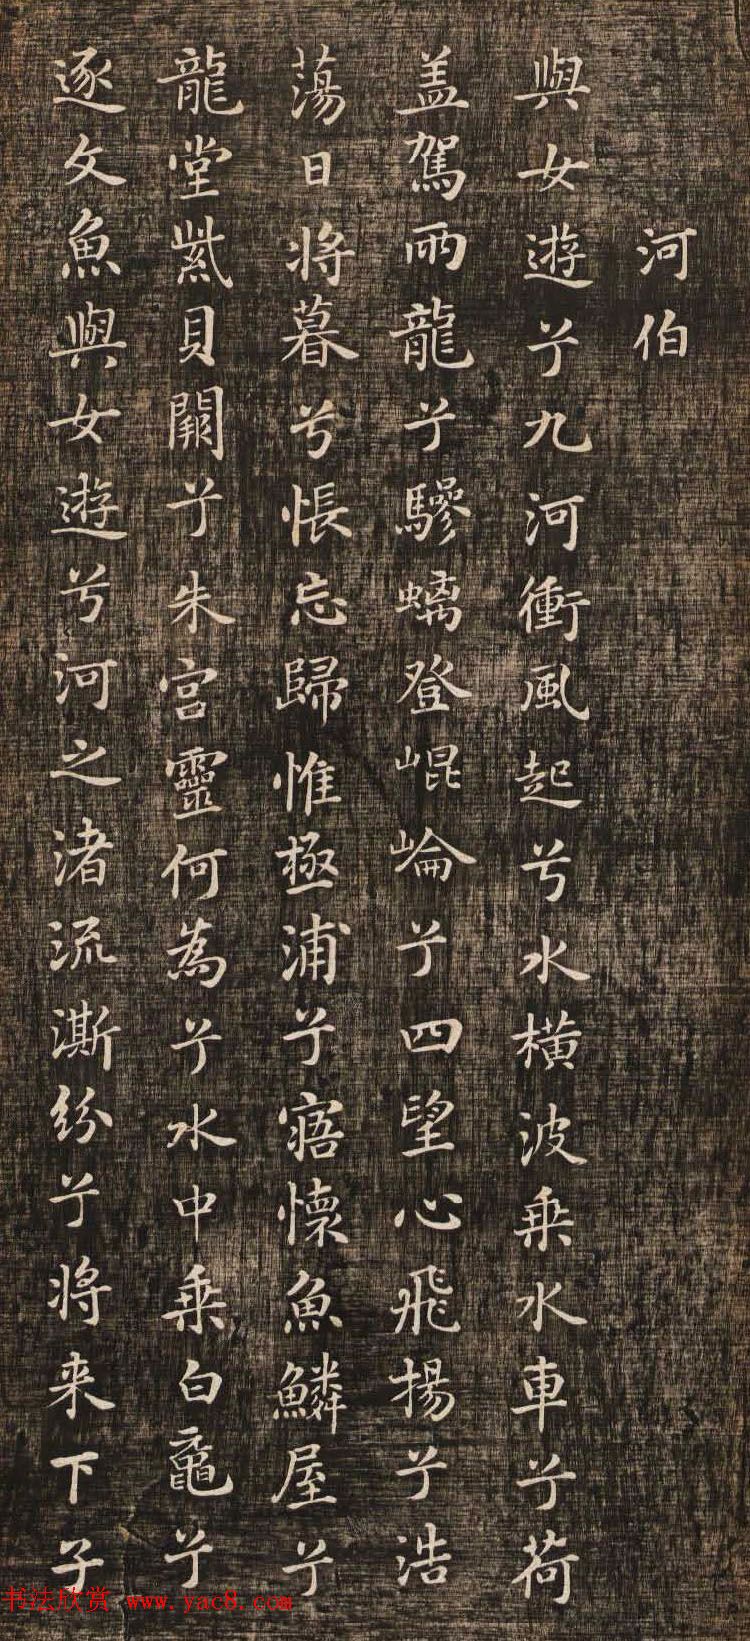 河伯
與女遊兮九河衝風起兮水橫波乗水車兮荷
盖駕兩龍兮驂螭登崐崘兮四望心飛揚兮浩
蕩日将暮兮悵忘歸惟極浦兮寤懷魚鱗屋兮
龍堂紫貝闕兮朱宮靈何為兮水中乗白黿兮
逐文魚與女遊兮河之渚流澌紛兮将来下子
书法欣赏 www.yac8.com